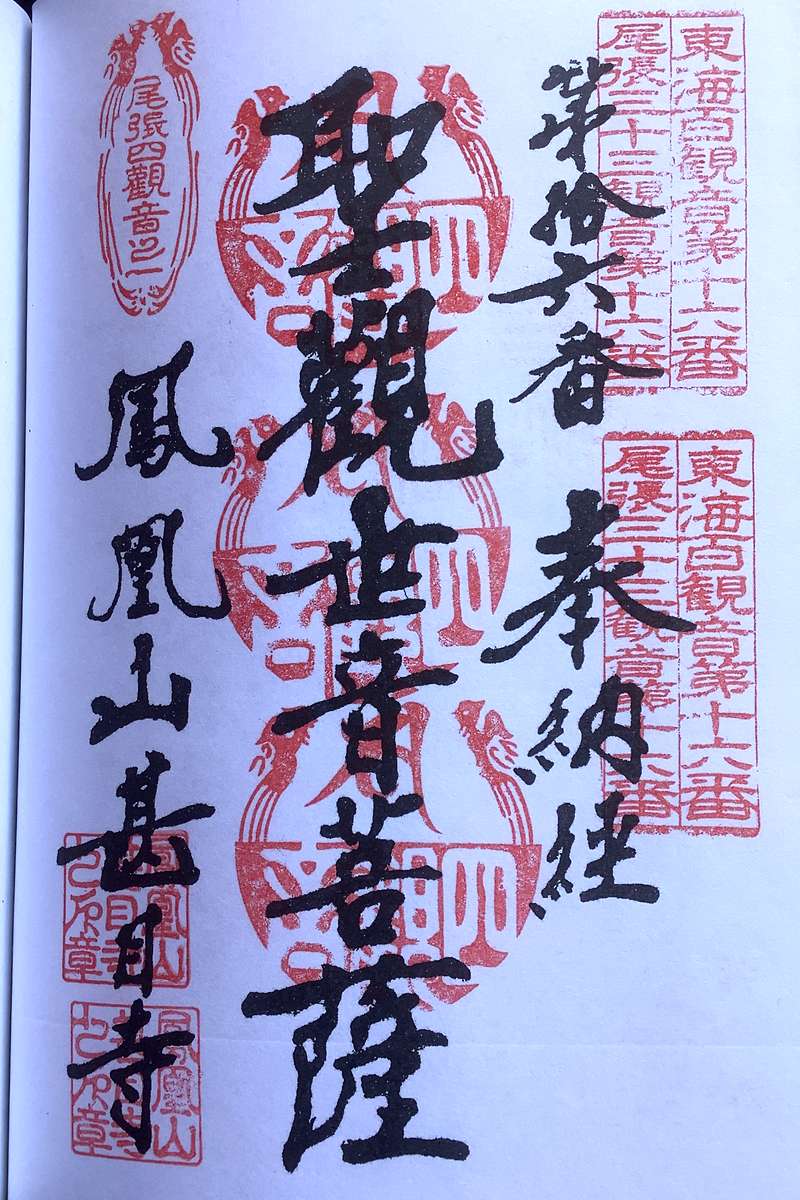 東海百観音第十六番
尾張三十三観音第十六番
東海百観音第十六番
尾張三十三観音第十六番
第拾六番
奉納経
聖觀世音菩薩
尾張四觀音之一
鳳凰山甚目寺
鳳凰山
鳳凰山